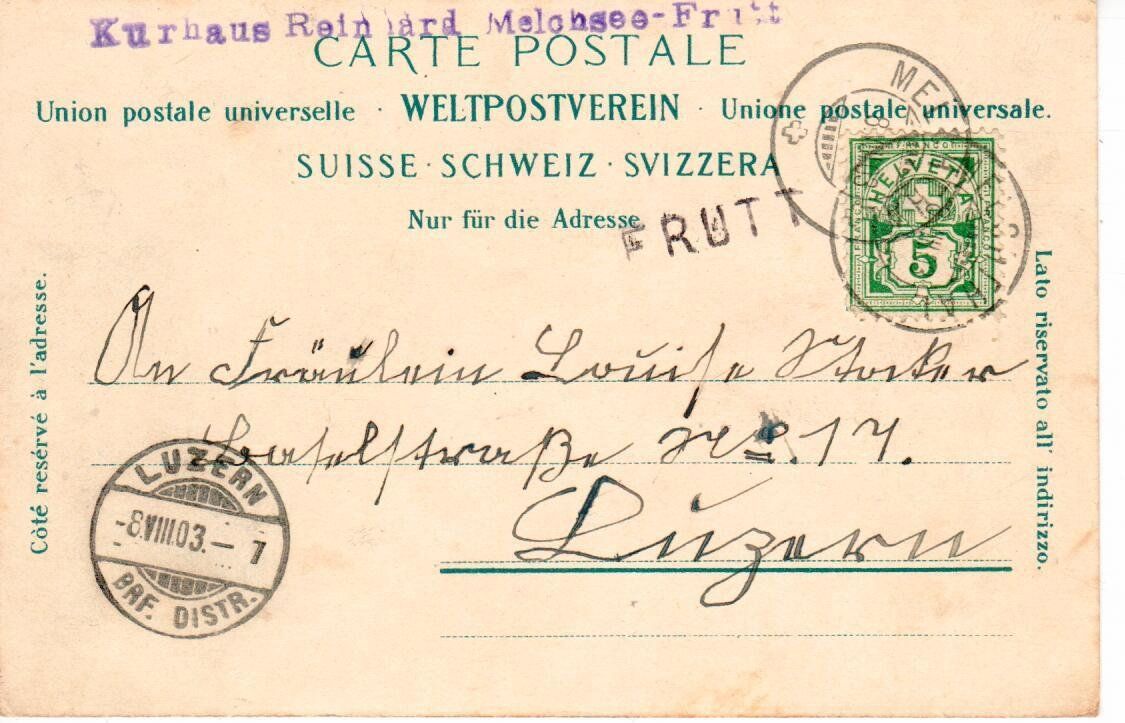 Kurhaus Reinhard Melchsee-Frutt
CARTE POSTALE
Union postale universelle · WELTPOSTVEREIN · Unione postale universale.
SUISSE · SCHWEIZ · SVIZZERA
Nur für die Adresse.
FRUTT
FRANCO
HELVETIA
5
Côté reservé à l'adresse.
Lato riservato all' indirizzo.
An Fräulein Louise Stocker
Baselstraße No. 17.
Luzern
LUZERN
-8.VIII.03.— 7
BRF. DISTR.